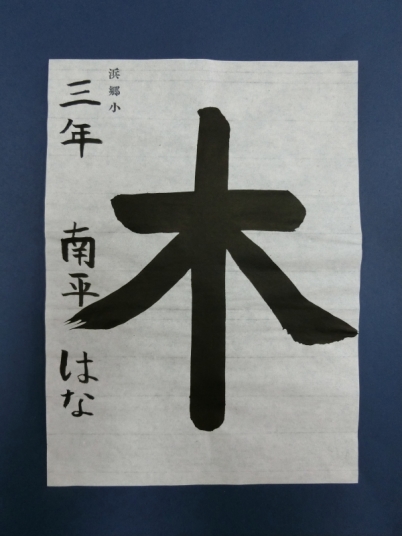 木
浜郷小
三年 南平はな